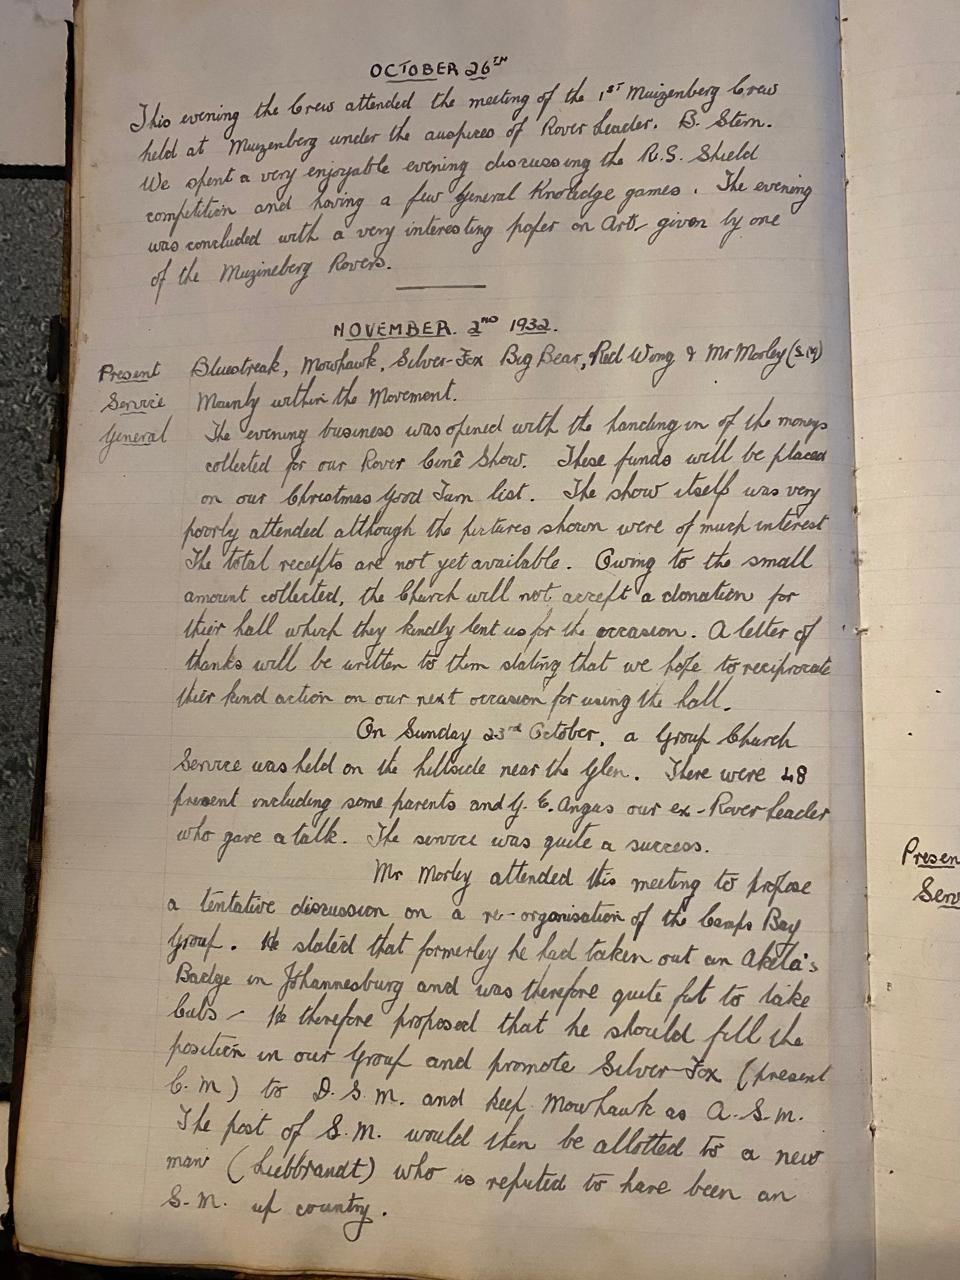 OCTOBER 26TH
This evening the Crew attended the meeting of the 1ST Muizenberg Crew
held at Muizenberg under the auspices of Rover Leader. B. Stern.
We spent a very enjoyable evening discussing the R.S. Shield
competition and having a few General Knowledge games. The evening
was concluded with a very interesting paper on Art, given by one
of the Muzineberg Rovers.
NOVEMBER. 2ND 1932.
Present Bluestreak, Mowhawk, Silver-Fox Big Bear, Red Wing & Mr Morley (S.M)
Service Mainly within the Movement.
General The evening business was opened with the handing in of the moneys
collected for our Rover Cinê Show. These funds will be placed
on our Christmas Good Turn list. The show itself was very
poorly attended although the pictures shown were of much interest
The total receipts are not yet available. Owing to the small
amount collected, the Church will not accept a donation for
their hall which they kindly lent us for the occasion. A letter of
thanks will be written to them stating that we hope to reciprocate
their kind action on our next occasion for using the hall.
On Sunday 23rd October, a Group Church
Service was held on the hillside near the Glen. There were 48
present including some parents and G. E. Angus our ex-Rover Leader
who gave a talk. The service was quite a success.
Mr Morley attended this meeting to propose
a tentative discussion on a re-organisation of the Camps Bay
Group. He stated that formerley he had taken out an Akela's
Badge in Johannesburg and was therefore quite fit to take
Cubs - He therefore proposed that he should fill the
position in our Group and promote Silver-Fox (present
C.M) to D.S.M. and keep Mowhawk as A.S.M.
The post of S.M. would then be allotted to a new
man (Liebbrandt) who is reputed to have been an
S.M. up country.
Presen
Serv